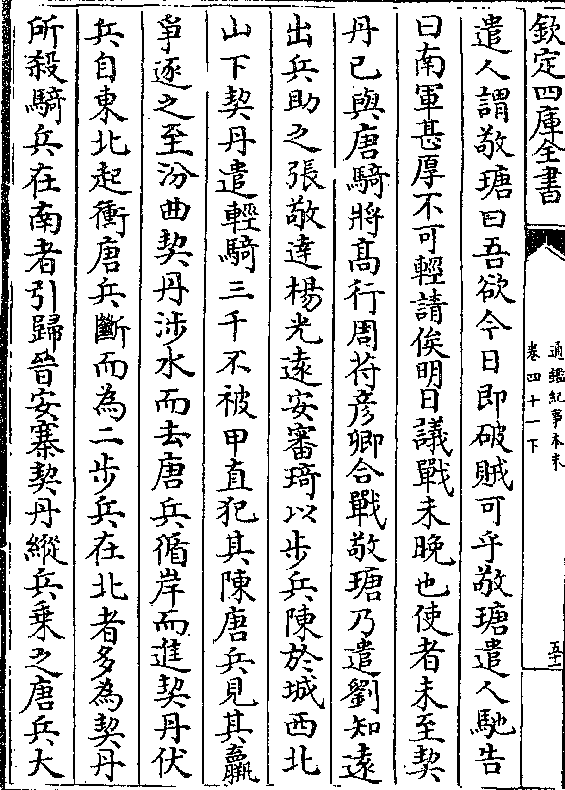 欽定四庫全書
通鑑紀事本末
卷四十一下
五十一
遣人謂敬瑭曰吾欲今日即破賊可乎敬瑭遣人馳告
曰南軍甚厚不可輕請俟明日議戰未晚也使者未至契
丹已與唐騎將髙行周苻彦卿合戰敬瑭乃遣劉知遠
出兵助之張敬達楊光遠安審琦以步兵陳於城西北
山下契丹遣輕騎三千不被甲直犯其陳唐兵見其羸
爭逐之至汾曲契丹涉水而去唐兵循岸而進契丹伏
兵自東北起衝唐兵斷而為二步兵在北者多為契丹
所殺騎兵在南者引歸晉安寨契丹縱兵乗之唐兵大